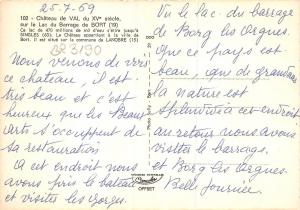 25.7.69
102 - Château de VAL du XVe siècle,
sur le Lac du Barrage de BORT (19)
Ce lac de 470 millions de m3 d'eau s'étire jusqu'à
SINGLES (63). Le Château appartient à la ville de BORT
(19). Il est situé sur le commune de LANOBRE (15)
BR 3190
Nous venons de vers
ce chateau, il est
très beau et
heureux que les Beaux
arts s'occupent de
sa restauration
A cet endroit nous
avons pris le bateau
et visiter les Gorges.
Vu le lac du barrage
de Borg les orgues.
Que ce pays est
beau, que de grandeur
la nature est
splendide à cet endroit
au retour nous avons
visites le barrage.
et Borg les orgues.
Belle Journée
OFFSET